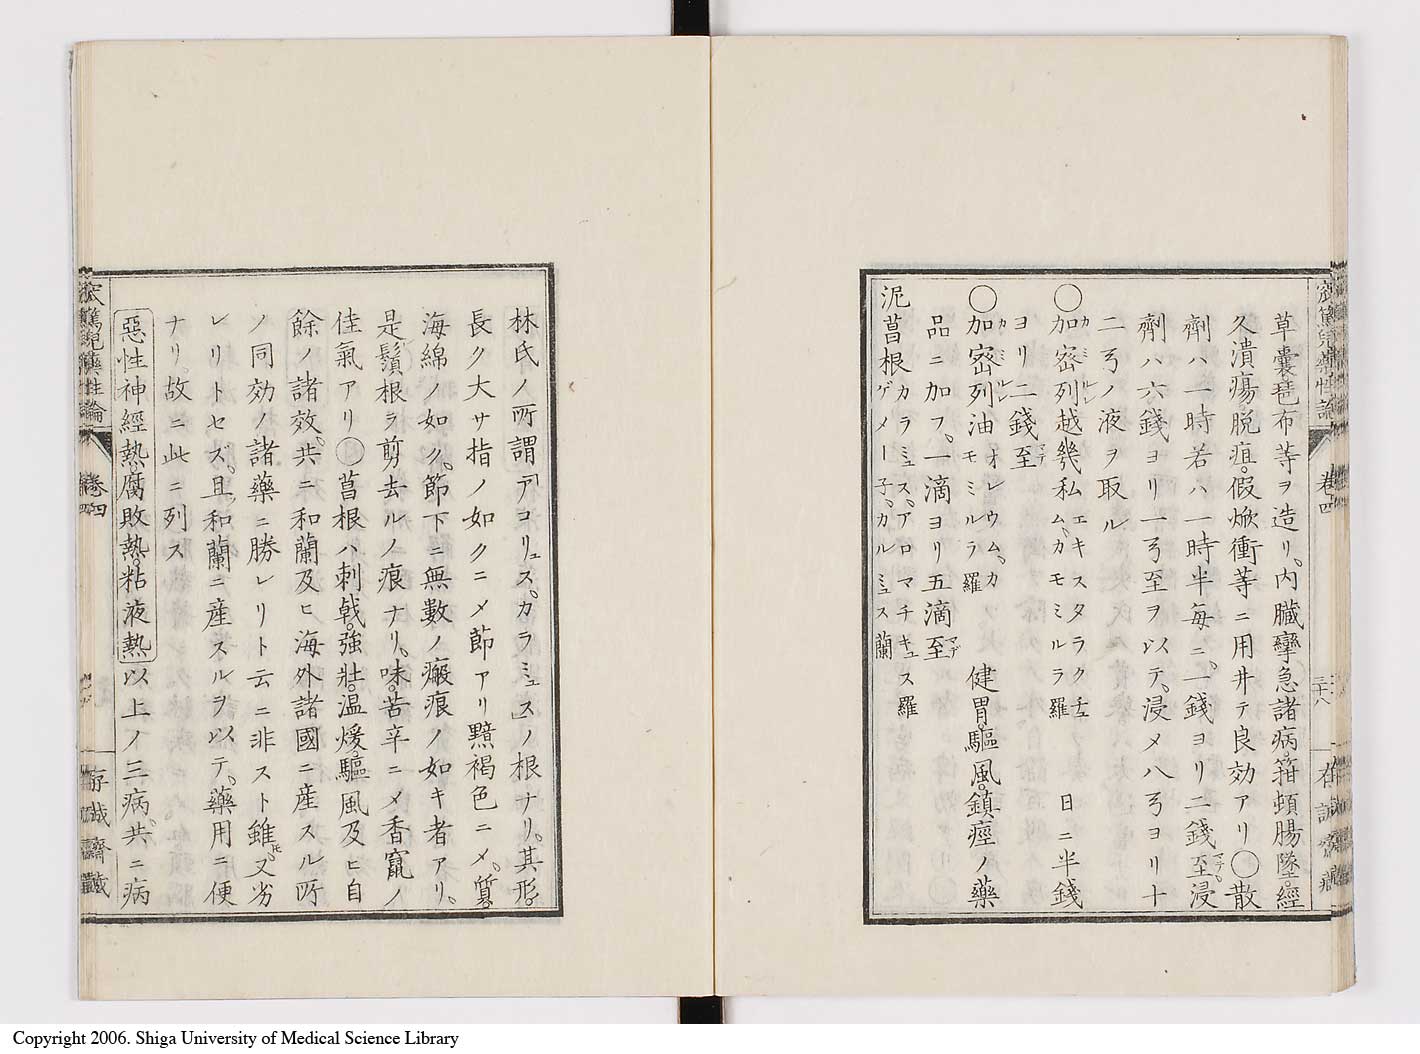 草囊琶布等ヲ造リ。内臓攣急諸病。箝頓腸墜。經
久潰瘍。脱疽。假焮衝等ニ用井テ良効アリ〇散
劑ハ一時若ハ一時半毎ニ。一錢ヨリ二錢至マデ。浸
劑ハ六錢ヨリ一弓至ヲ以テ。浸メ八弓ヨリ十
二弓ノ液ヲ取ル
〇加密列越幾私 カミルレ エキスタラクチュム。カモミルラ 羅 日ニ半錢
ヨリ二錢至マデ
〇加密列油 カミルレ オレウム。カモミルラ 羅 健胃。驅風。鎮痙ノ藥
品ニ加フ。一滴ヨリ五滴至マデ
泥菖根 カラミュス。アロマチキュス 羅 ゲメーー子。カルミュス 蘭
窊篤兒藥性論 卷四 三十八 存誠齋藏
林氏ノ所謂「アコリュス。カラミュス」ノ根ナリ。其形。
長ク大サ指ノ如クニメ節アリ黯褐色ニメ。質。
海綿ノ如ク。節下ニ無數ノ瘢痕ノ如キ者アリ。
是鬚根ヲ剪去ルノ痕ナリ。味。苦辛ニメ香竄ノ
佳氣アリ〇菖根ハ刺戟。強壯。温煖。驅風及ヒ自
餘ノ諸效。共ニ和蘭及ヒ海外諸國ニ産スル所
ノ同効ノ諸藥ニ勝レリト云ニ非スト雖トモ。又劣
レリトセズ。且。和蘭ニ産スルヲ以テ。藥用ニ便
ナリ。故ニ此ニ列ス
惡性神經熱。腐敗熱。粘液熱以上ノ三病。共ニ病
窊篤兒藥性論 卷四 存誠齋藏
Copyright 2006. Shiga University of Medical Science Library